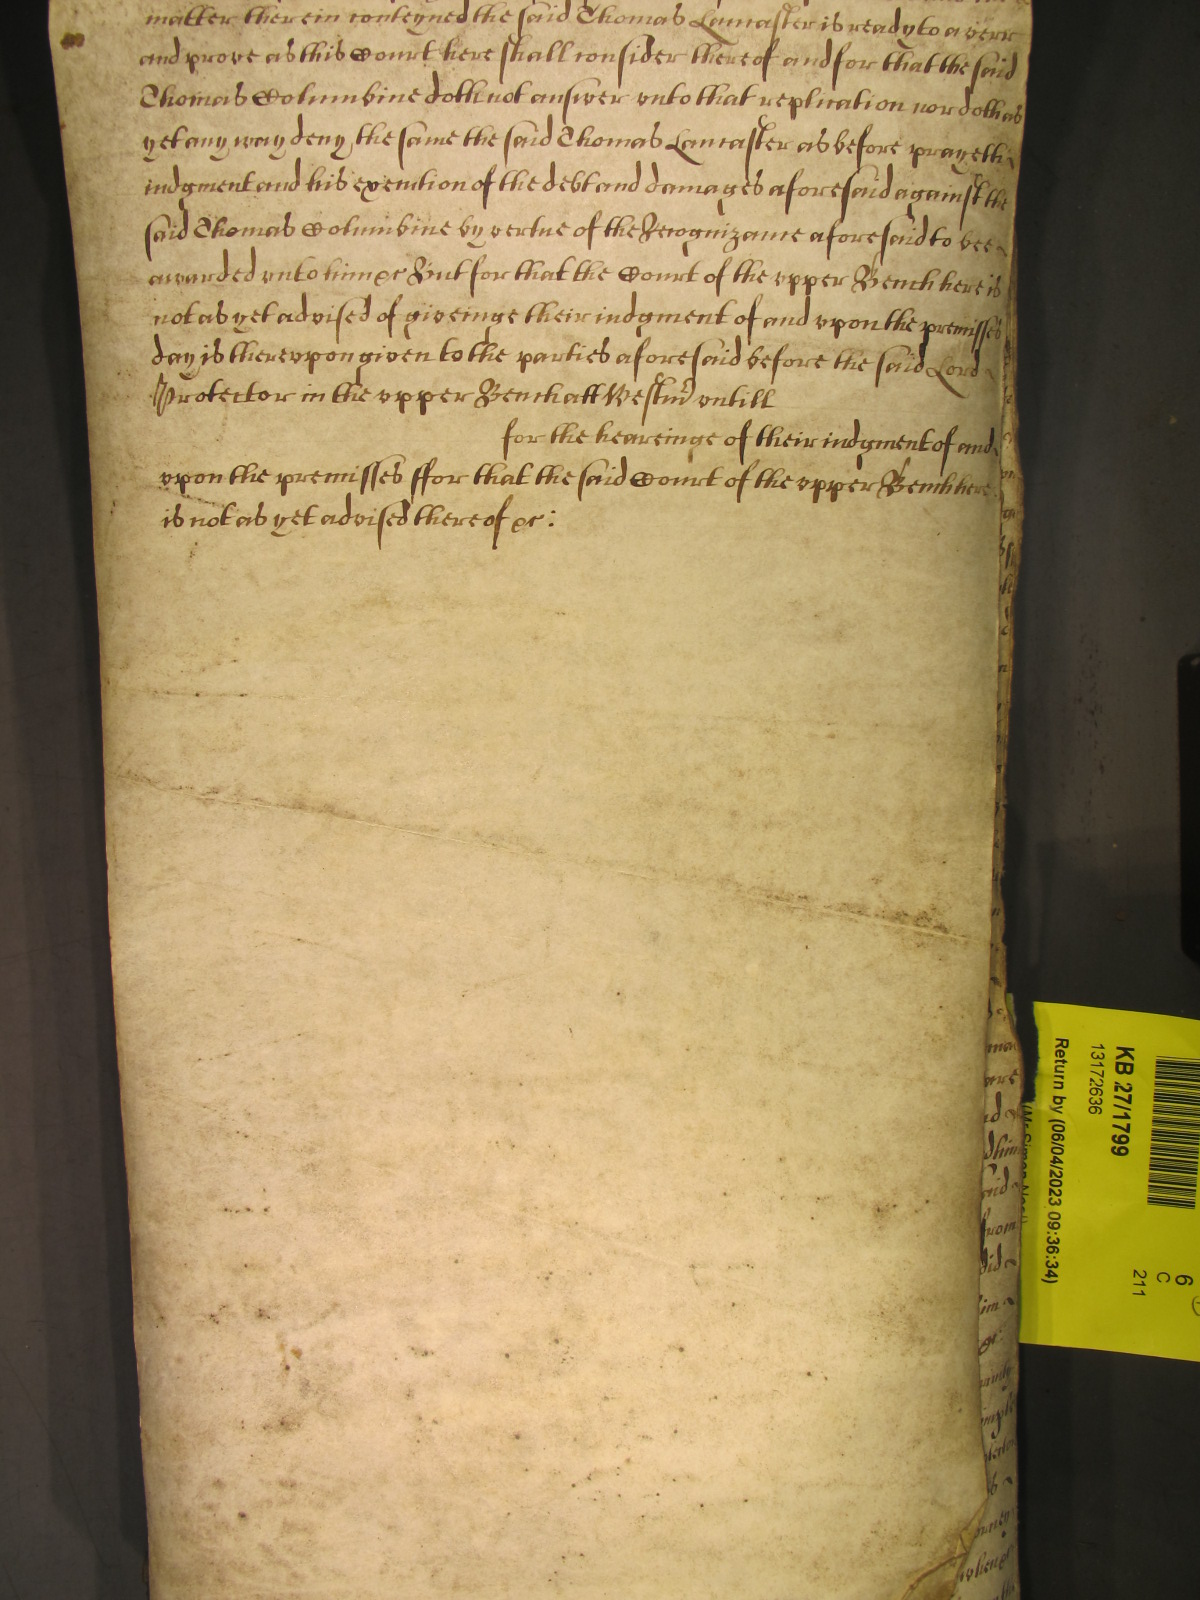 matter therein conteyned the said Thomas Lancaster is ready to averr
and prove as this Court here shall consider thereof and for that the said
Thomas Columbine doth not answer vnto that replication nor doth as
yet any way deny the same the said Thomas Lancaster as before prayeth
iudgment and his execution of the debt and damages aforesaid against the
said Thomas Columbine by vertue of the Recognizance aforesaid to bee
awarded vnto him &c But for that the Court of the vpper Bench here is
not as yet advised of giveinge their iudgment of and vpon the premisses
day is therevpon given to the parties aforesaid before the said Lord
Protector in the vpper Bench att Westmr vntill
for the heareinge of their iudgment of and
vpon the premisses ffor that the said Court of the vpper Bench here
is not as yet advised thereof &c :
KB 27/1799
13172636
Return by (06/04/2023 09:36:34)
6
C
211